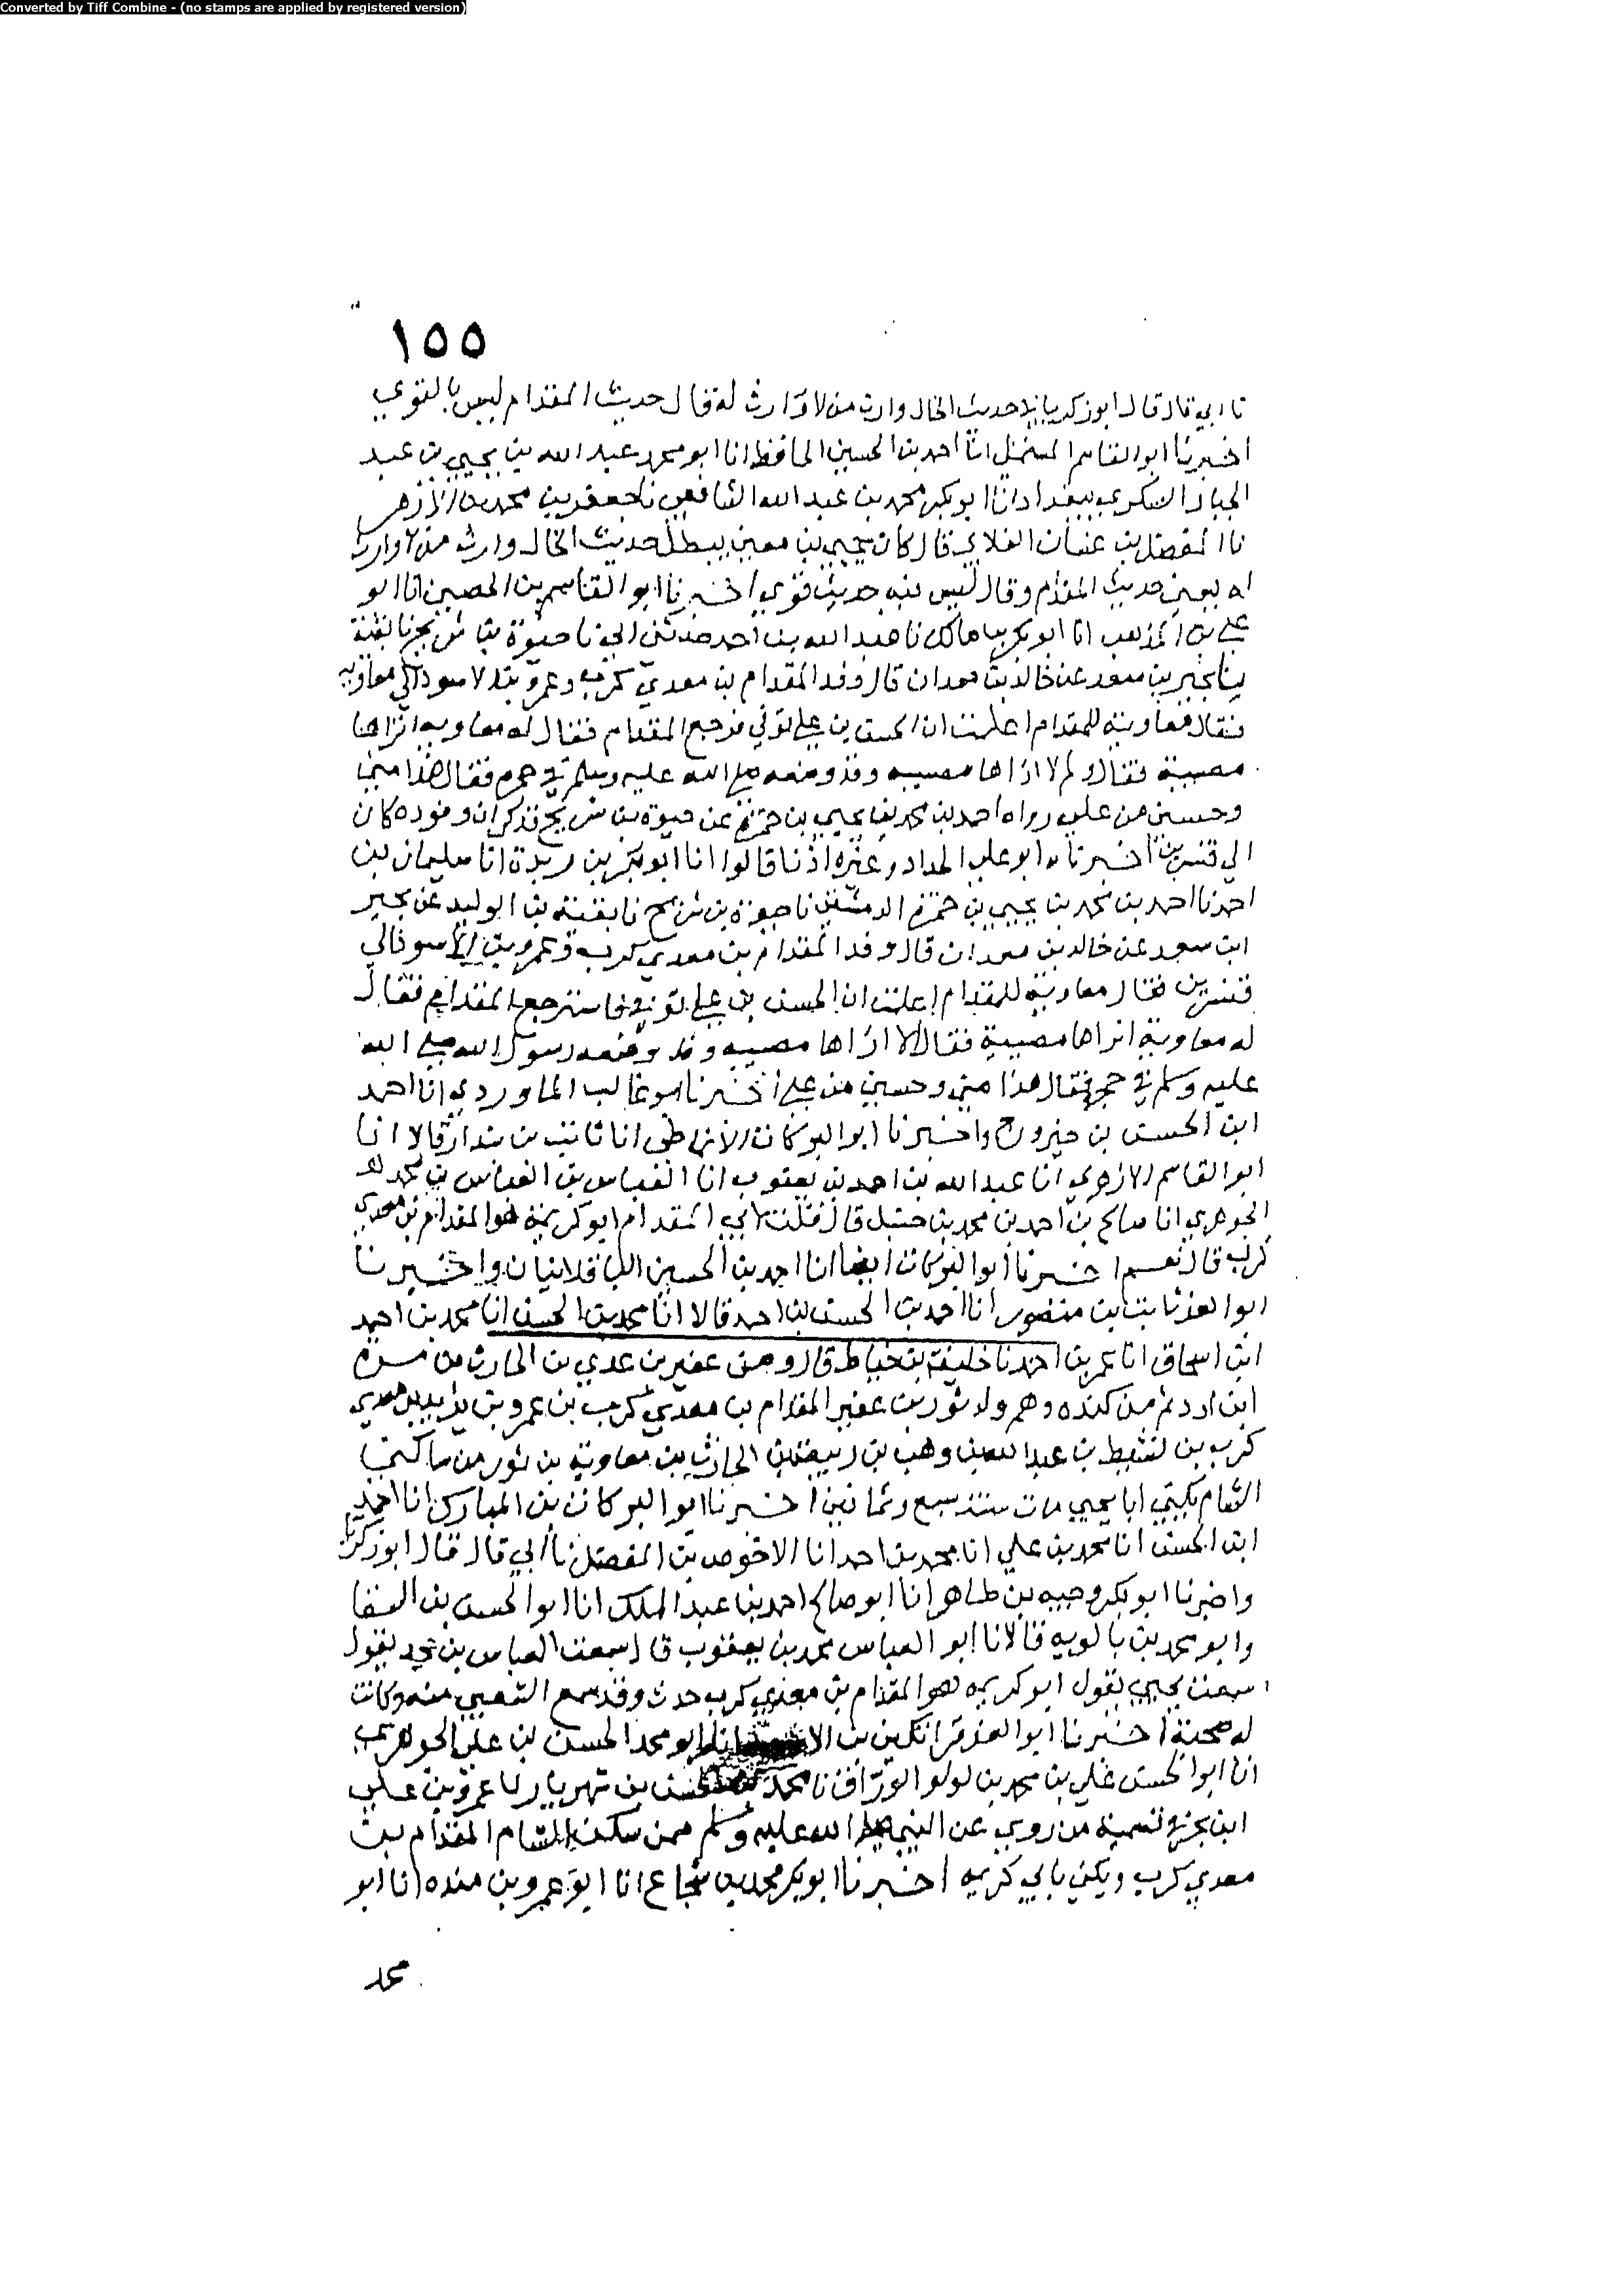 Converted by Tiff Combine - (no stamps are applied by registered version)
١٥٥
نا ابي قال قال ابو زكريا حديث الخال وارث من لا وارث له قال حديث المقدام ليس بالقوي
اخبرنا ابو القاسم المستملي انا احمد بن الحسين الحافظ انا ابو محمد عبد الله بن يحيى بن عبد
الجبار السكري ببغداد انا ابو بكر محمد بن عبد الله الشافعي نا جعفر بن محمد بن الازهر
نا المفضل بن غسان الغلابي قال كان يحيى بن معين يبطل حديث الخال وارث من لا وارث
له يعني حديث المقدام وقال ليس فيه حديث قوي اخبرنا ابو القاسم بن الحصين انا ابو
علي بن المذهب انا ابو بكر بن مالك نا عبد الله بن احمد حدثني ابي نا حيوة بن شريح نا بقية
نا بحير بن سعد عن خالد بن معدان قال وفد المقدام بن معدي كرب وعمرو بن الاسود الى معاوية
فقال معاوية للمقدام اعلمت ان الحسن بن علي توفي فرجع المقدام فقال له معاوية اتراها
مصيبة فقال ولم لا اراها مصيبه وقد وضعه صلى الله عليه وسلم في حجره فقال هذا مني
وحسين من علي رواه احمد بن محمد بن يحيى بن حمزة عن حيوة بن شريح فذكر ان وفوده كان
الى قنسرين اخبرناه ابو علي الحداد وغيره اذنا قالوا انا ابو بكر بن ريذة انا سليمان بن
احمد نا احمد بن محمد بن يحيى بن حمزة الدمشقي نا حيوة بن شريح نا بقية بن الوليد عن بحير
ابن سعد عن خالد بن معدان قال وفد المقدام بن معدي كرب وعمرو بن الاسود الى
قنسرين فقال معاوية للمقدام اعلمت ان الحسن بن علي توفي فاسترجع المقدام فقال
له معاوية اتراها مصيبة فقال لا اراها مصيبه وقد وضعه رسول الله صلى الله
عليه وسلم في حجره فقال هذا مني وحسين من علي اخبرنا ابو غالب الماوردي انا احمد
ابن الحسن بن خيرون ح واخبرنا ابو البركات الانماطي انا ثابت بن بندار قالا انا
ابو القاسم الازهري انا عبد الله بن احمد بن يعقوب انا العباس بن العباس بن محمد
الجوهري انا صالح بن احمد بن محمد بن حنبل قال قلت لابي المقدام ابو كريمة هو المقدام بن معدي
كرب قال نعم اخبرنا ابو البركات ايضا انا احمد بن الحسين الباقلانيان واخبرنا
ابو العز ثابت بن منصور انا احمد بن الحسن بن احمد قالا انا محمد بن الحسن انا محمد بن احمد
ابن اسحاق انا عمر بن احمد نا خليفة بن خياط قال ومن عفير بن عدي بن الحارث بن مرة
ابن ادد ثم من كنده وهم ولد ثور بن عفير المقدام بن معدي كرب بن عمرو بن يزيد بن معدي
كرب بن عبد الله بن وهب بن ربيعة بن الحارث بن معاوية بن ثور من ساكني
الشام يكنى ابا يحيى مات سنة سبع وثمانين اخبرنا ابو البركات بن المبارك انا احمد
ابن الحسن انا محمد بن علي انا محمد بن احمد انا الاحوص بن المفضل نا ابي قال قال ابو زكريا
واخبرنا ابو بكر وجيه بن طاهر انا ابو صالح احمد بن عبد الملك انا ابو الحسن بن السقا
وابو محمد بن بالويه قالا نا ابو العباس محمد بن يعقوب قال سمعت العباس بن محمد يقول
سمعت يحيى يقول ابو كريمه هو المقدام بن معدي كرب حدث وقد سمع الشعبي منه وكانت
له صحبة اخبرنا ابو العز قراتكين بن الاسعد انا ابو محمد الحسن بن علي الجوهري
انا ابو الحسن علي بن محمد بن لولو الوراق نا محمد بن الحسن بن شهريار نا عمرو بن علي
ابن بحر في تسمية من روى عن النبي صلى الله عليه وسلم ممن سكن الشام المقدام بن
معدي كرب ويكنى بابي كريمه اخبرنا ابو بكر محمد بن شجاع انا ابو عمرو بن منده انا ابو
محمد